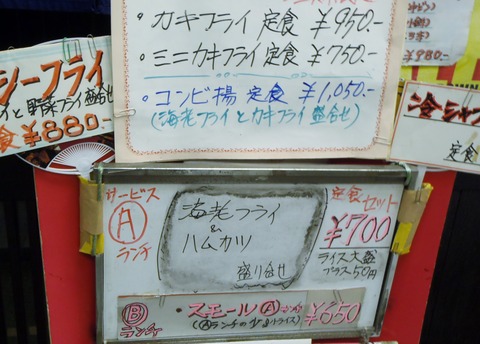 ・カキフライ 定食 ¥950-
・ミニカキフライ 定食 ¥750-
・コンビ揚 定食 ¥1,050-
(海老フライとカキフライ盛合せ)
シーフライ
イと野菜フライ盛合せ
食 ¥880-
¥980-
定食
サービス
Ⓐ
ランチ
海老フライ
&
ハムカツ
盛り合せ
定食セット
¥700
ライス大盛
プラス50円
Ⓑ
ランチ
・スモールⒶランチ ¥650